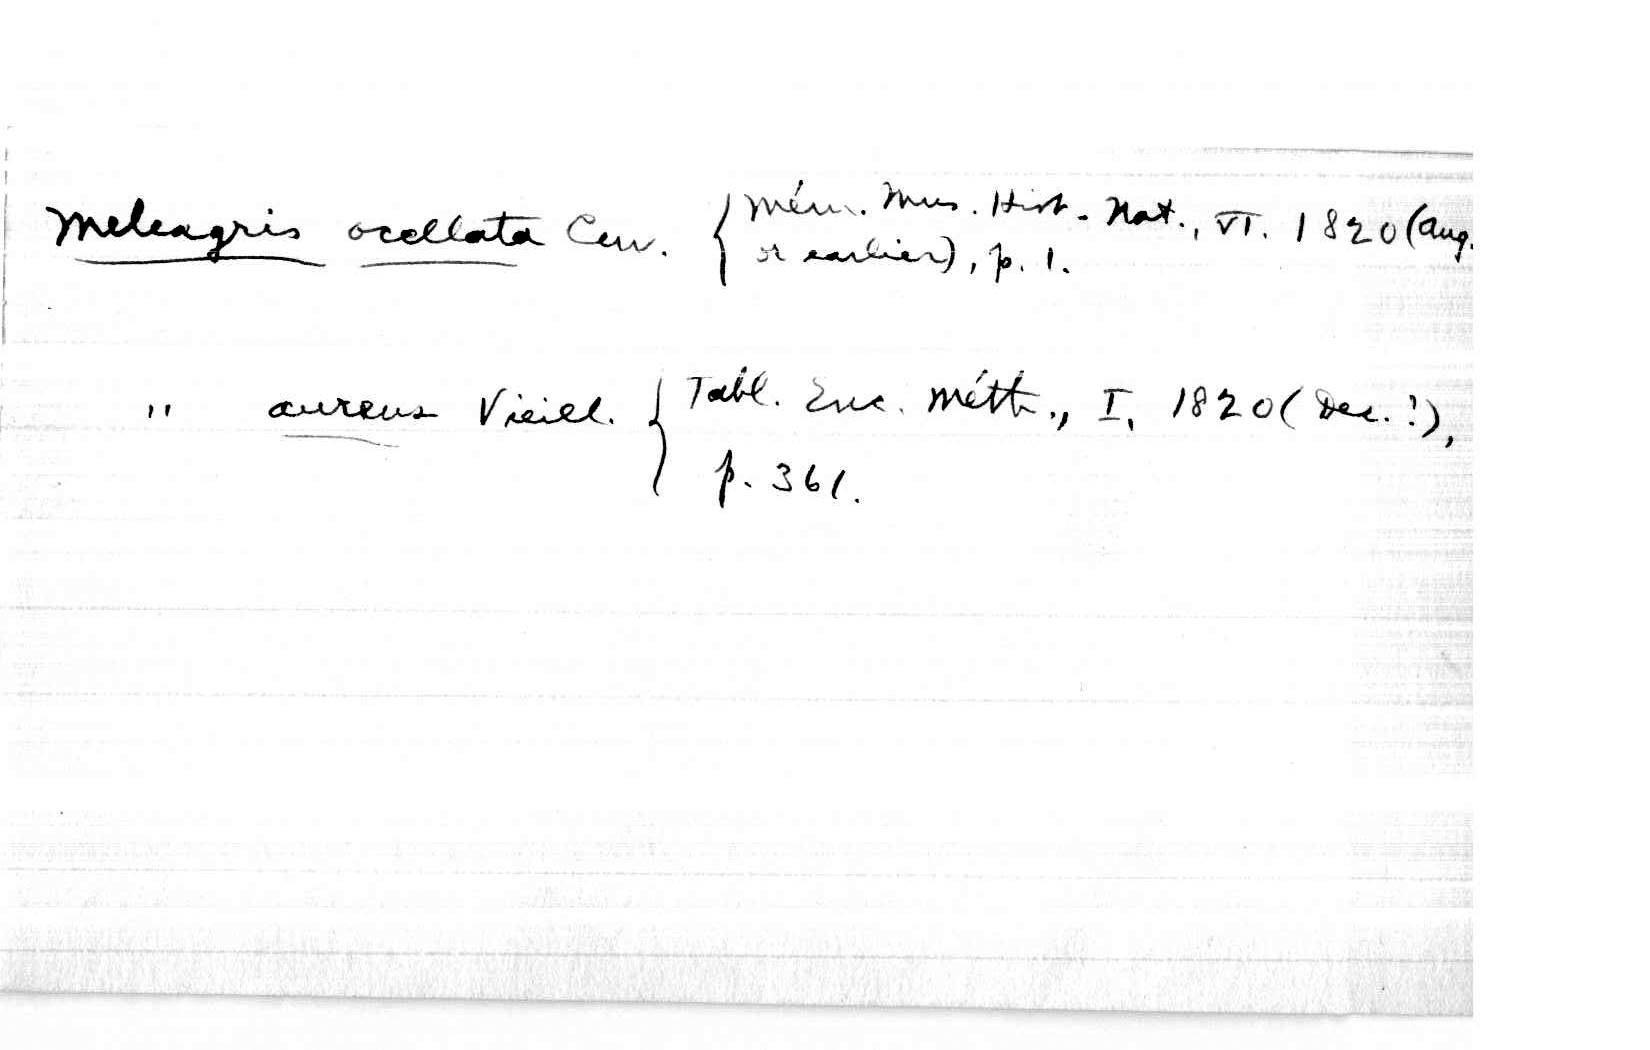 Meleagris ocellata Cuv. { Mém. Mus. Hist. Nat., VI. 1820 (Aug.
or earlier), p. 1.
" aureus Vieill. { Tabl. Enc. Méth., I, 1820 (Dec.!),
p. 361.